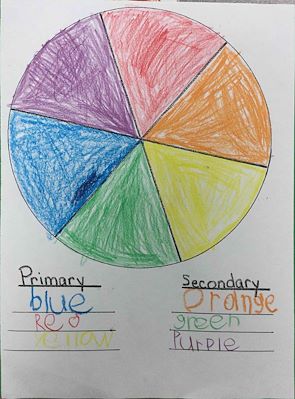 Primary
blue
Red
yellow
Secondary
Orange
green
Purple